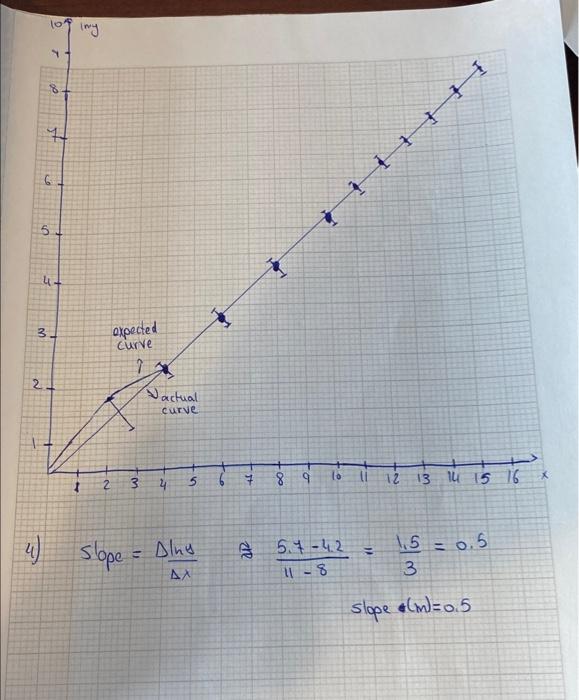 10 lny
9
8
7
6
5
4
3
2
1
expected
curve
actual
curve
1 2 3 4 5 6 7 8 9 10 11 12 13 14 15 16 x
4) Slope = Δlny / Δx ≅ 5.7-4.2 / 11-8 = 1.5 / 3 = 0.5
slope (m)=0.5